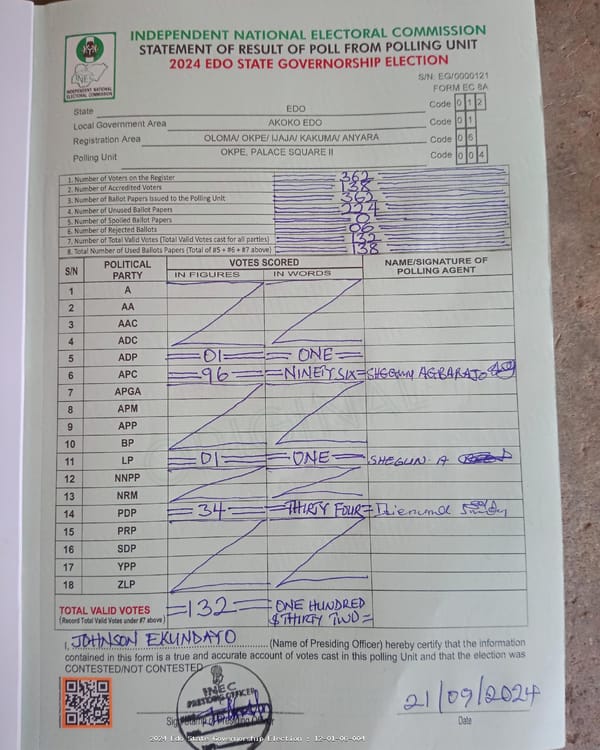 INDEPENDENT NATIONAL ELECTORAL COMMISSION
STATEMENT OF RESULT OF POLL FROM POLLING UNIT
2024 EDO STATE GOVERNORSHIP ELECTION
INEC
INDEPENDENT NATIONAL
ELECTORAL COMMISSION
S/N: EG/0000121
FORM EC 8A
State EDO Code 0 1 2
Local Government Area AKOKO EDO Code 0 1
Registration Area OLOMA/ OKPE/ IJAJA/ KAKUMA/ ANYARA Code 0 6
Polling Unit OKPE, PALACE SQUARE II Code 0 0 4
1. Number of Voters on the Register 362
2. Number of Accredited Voters 138
3. Number of Ballot Papers Issued to the Polling Unit 362
4. Number of Unused Ballot Papers 224
5. Number of Spoiled Ballot Papers 0
6. Number of Rejected Ballots 06
7. Number of Total Valid Votes (Total Valid Votes cast for all parties) 132
8. Total Number of Used Ballots Papers (Total of #5 + #6 + #7 above) 138
S/N POLITICAL PARTY VOTES SCORED NAME/SIGNATURE OF POLLING AGENT
IN FIGURES IN WORDS
1 A
2 AA
3 AAC
4 ADC
5 ADP 01 ONE
6 APC 96 NINETY SIX SHEGUN AGBARAJO
7 APGA
8 APM
9 APP
10 BP
11 LP 01 ONE SHEGUN A
12 NNPP
13 NRM
14 PDP 34 THIRTY FOUR
15 PRP
16 SDP
17 YPP
18 ZLP
TOTAL VALID VOTES 132 ONE HUNDRED
(Record Total Valid Votes under #7 above) & THIRTY TWO
I, JOHNSON EKUNDAYO (Name of Presiding Officer) hereby certify that the information
contained in this form is a true and accurate account of votes cast in this polling Unit and that the election was
CONTESTED/NOT CONTESTED
INEC
PRESIDING OFFICER
21/09/2024
Date
2024 Edo State Governorship Election : 12-01-06-004